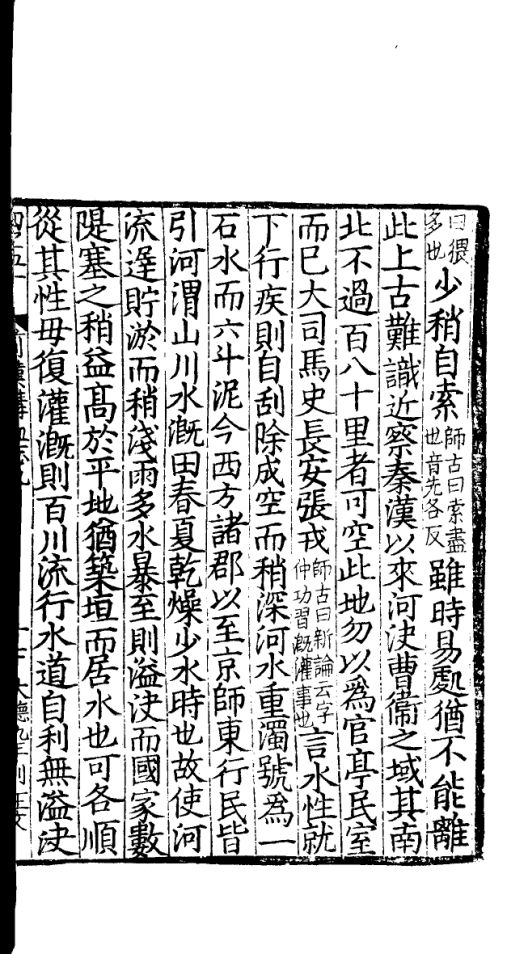 曰猥多也少稍自索師古曰索盡也音先各反雖時易處猶不能離
此上古難識近察秦漢以來河決曹衞之域其南
北不過百八十里者可空此地勿以爲官亭民室
而已大司馬史長安張戎師古曰新論云字仲功習溉灌事也言水性就
下行疾則自刮除成空而稍深河水重濁號爲一
石水而六斗泥今西方諸郡以至京師東行民皆
引河渭山川水溉田春夏乾燥少水時也故使河
流遟貯淤而稍淺雨多水暴至則溢決而國家數
隄塞之稍益髙於平地猶築垣而居水也可各順
從其性毋復灌溉則百川流行水道自利無溢決